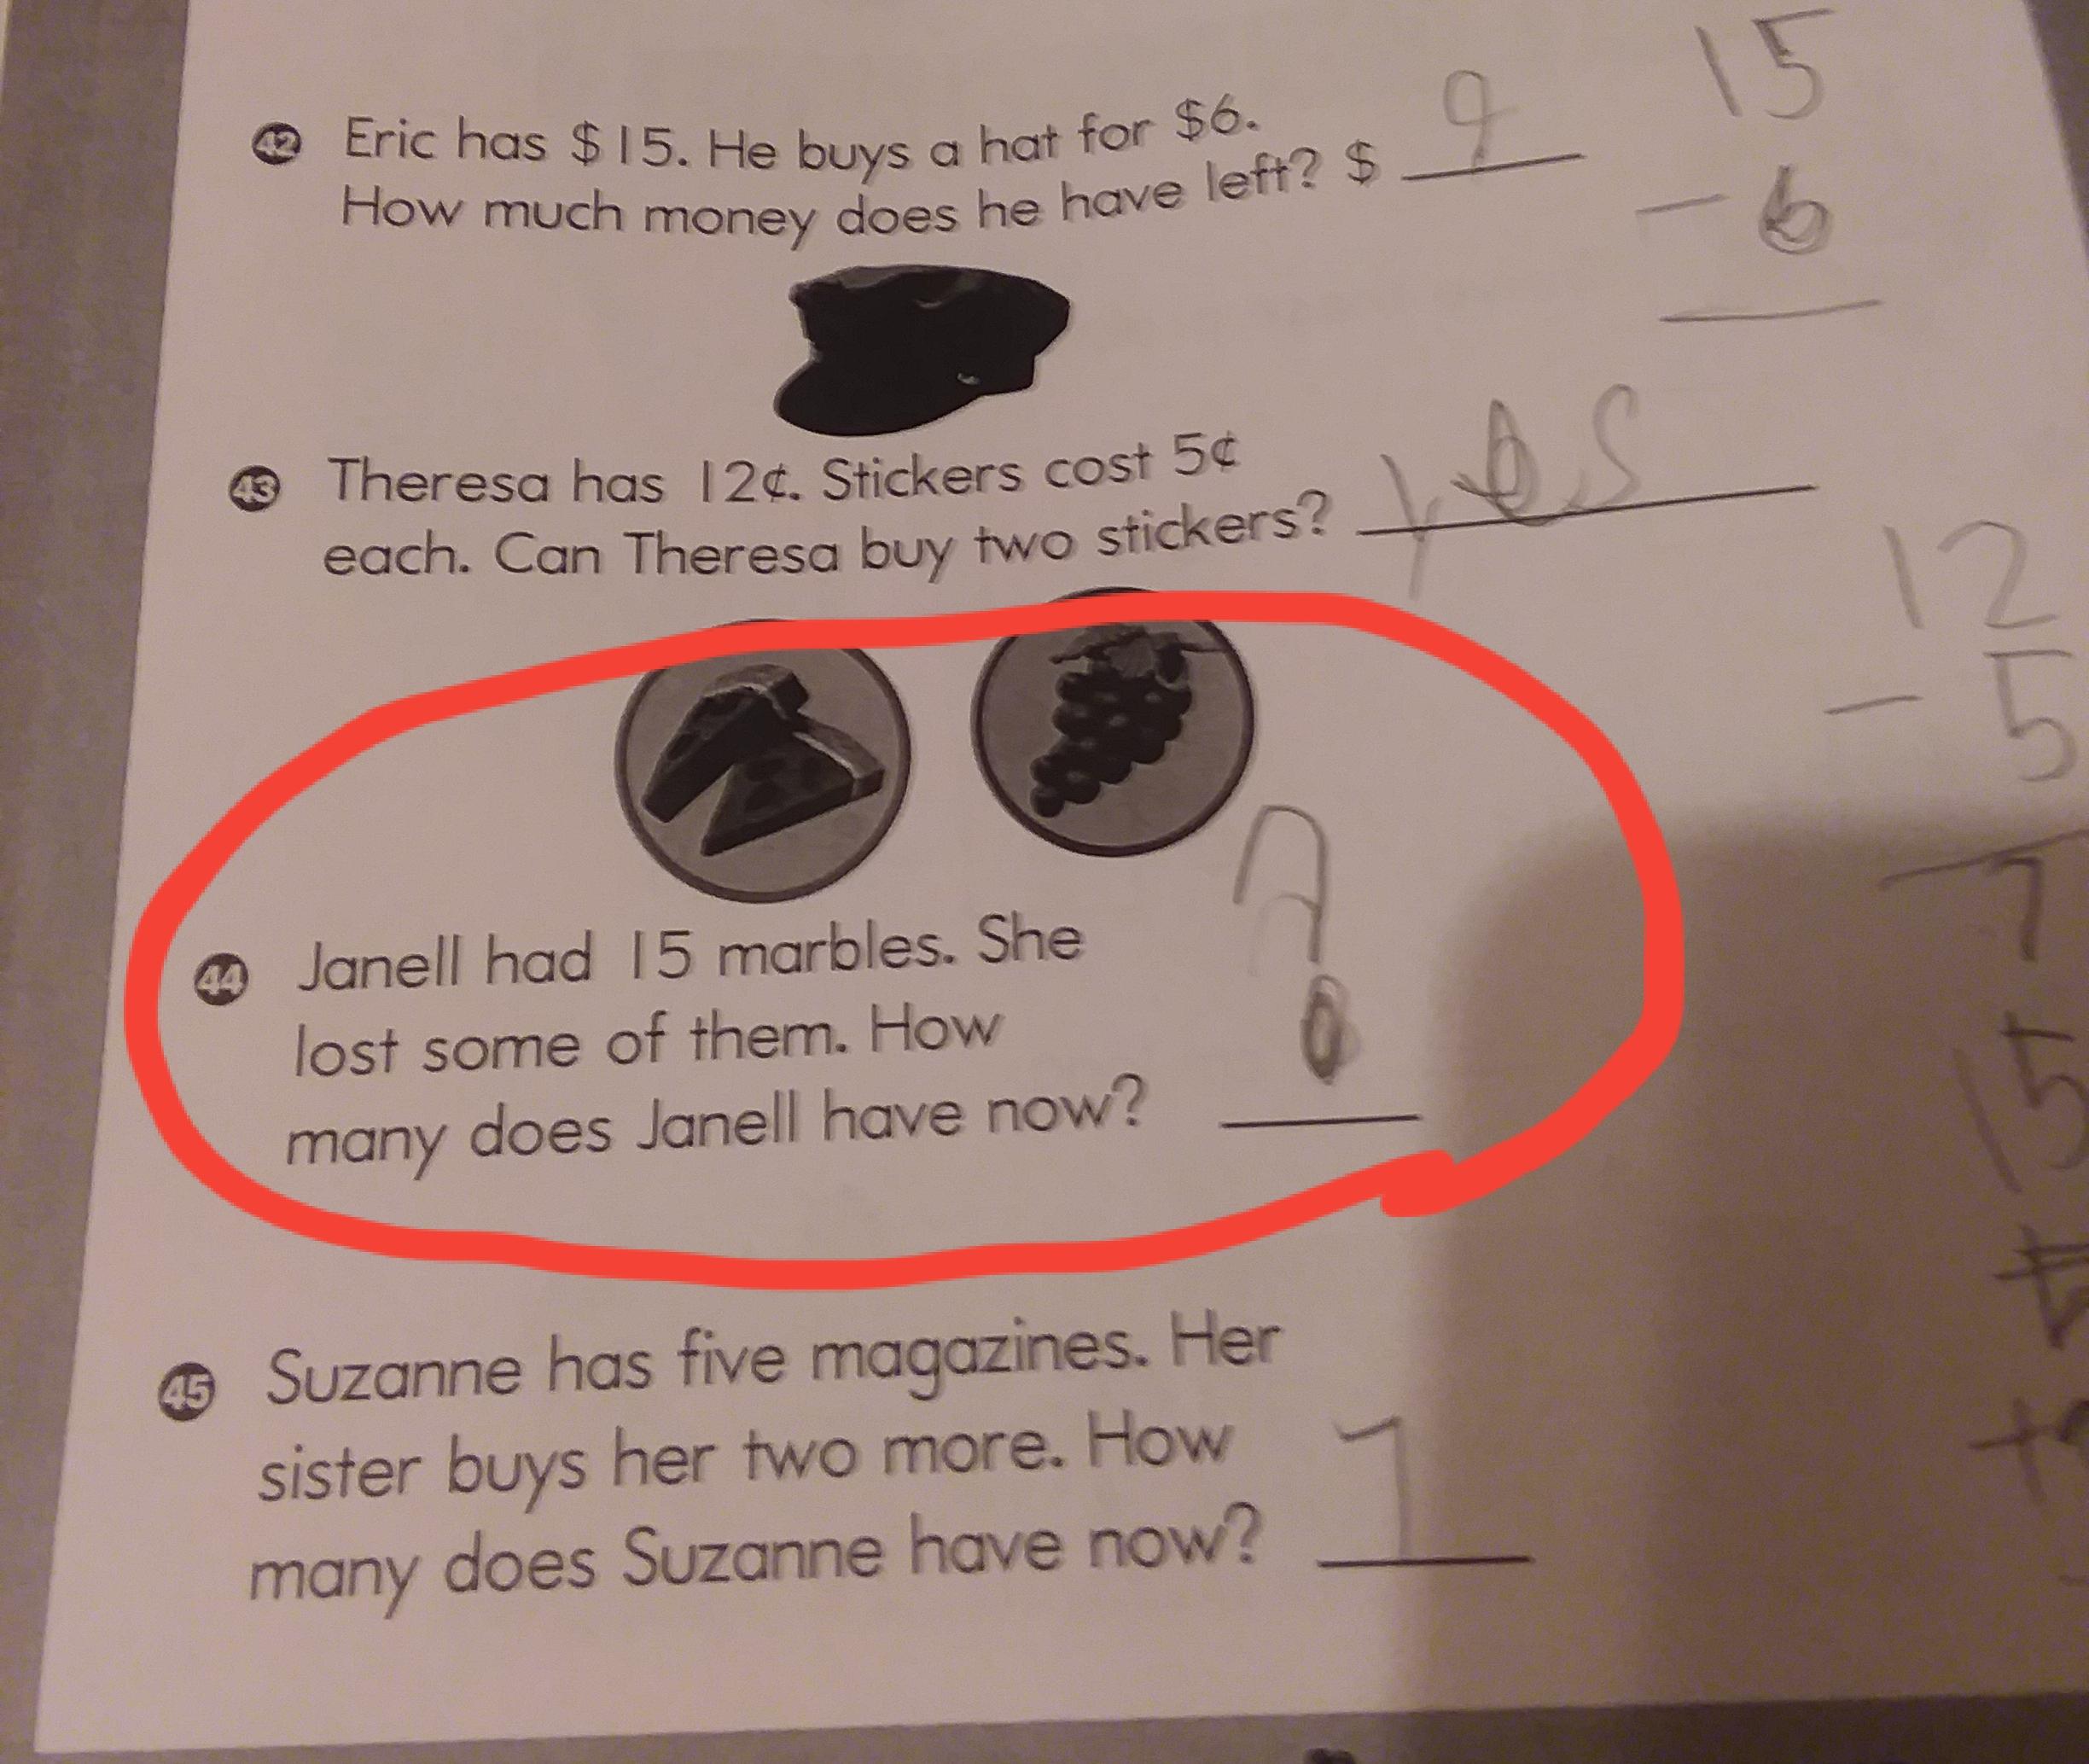 42 Eric has $15. He buys a hat for $6.
How much money does he have left? $ 9
15
- 6
43 Theresa has 12¢. Stickers cost 5¢
each. Can Theresa buy two stickers? yes
12
- 5
7
44 Janell had 15 marbles. She
lost some of them. How
many does Janell have now?
?
15
45 Suzanne has five magazines. Her
sister buys her two more. How
many does Suzanne have now? 7